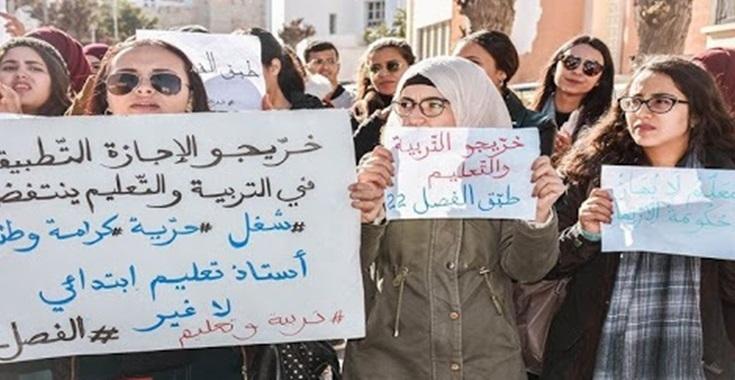 طبق الفصل
خرّيجو الإجازة التّطبيقي
في التربية والتّعليم ينتفض
#شغل #حرّية #كرامة وطن
أستاذ تعليم ابتدائي
لا غير
#الفصل
#تربية وتعليم
خرّيجو التّربية
والتّعليم
طبّق الفصل 22
معلّم لا يُهان
حكومة